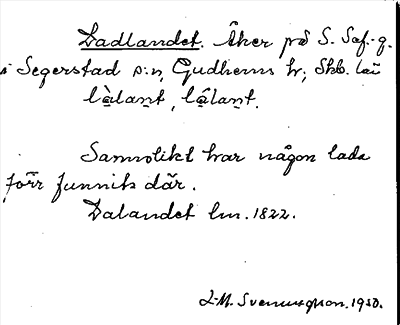 Ladlandet. Åker på S. Säf.-g.
i Segerstad s:n, Gudhems hr; Skb. län
làlant, lâlant.
Sannolikt har någon lada
förr funnits där.
Lalandet lm. 1822.
J.M. Svennungsson. 1930.